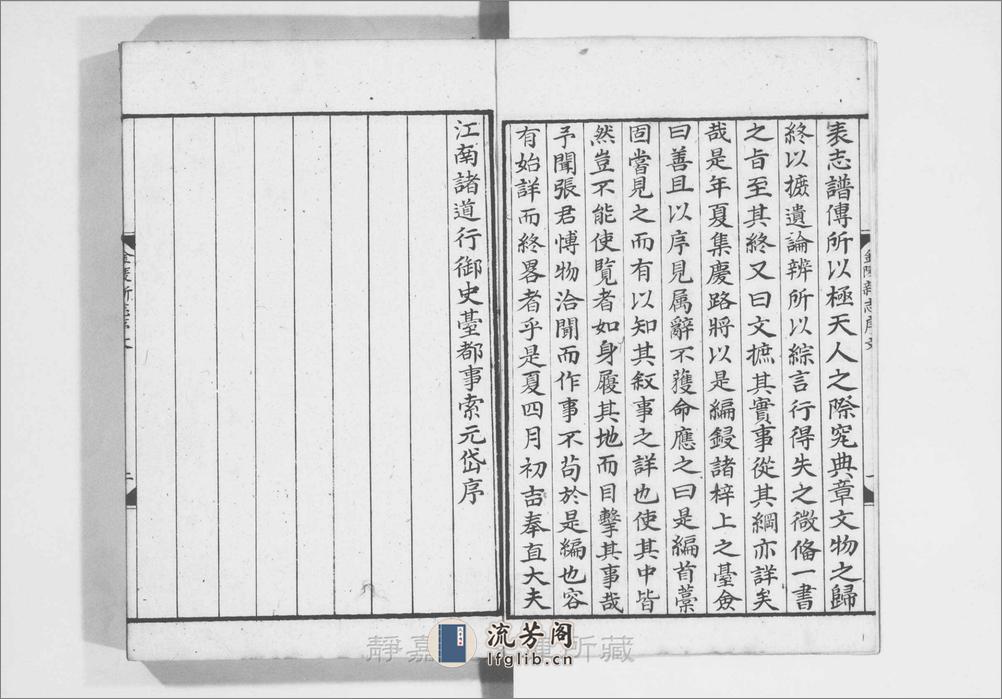 表志譜傳所以極天人之際究典章文物之歸
終以摭遺論辨所以綜言行得失之微備一書
之旨至其終又曰文摭其實事從其綱亦詳矣
哉是年夏集慶路將以是編鋟諸梓上之臺僉
曰善且以序見属辭不獲命應之曰是編首藁
固嘗見之而有以知其叙事之詳也使其中皆
然豈不能使覧者如身履其地而目擊其事哉
予聞張君愽物洽聞而作事不苟於是編也容
有始詳而終畧者乎是夏四月初吉奉直大夫
江南諸道行御史臺都事索元岱序
金陵新志序文
靜嘉
所藏
流芳阁
lfglib.cn